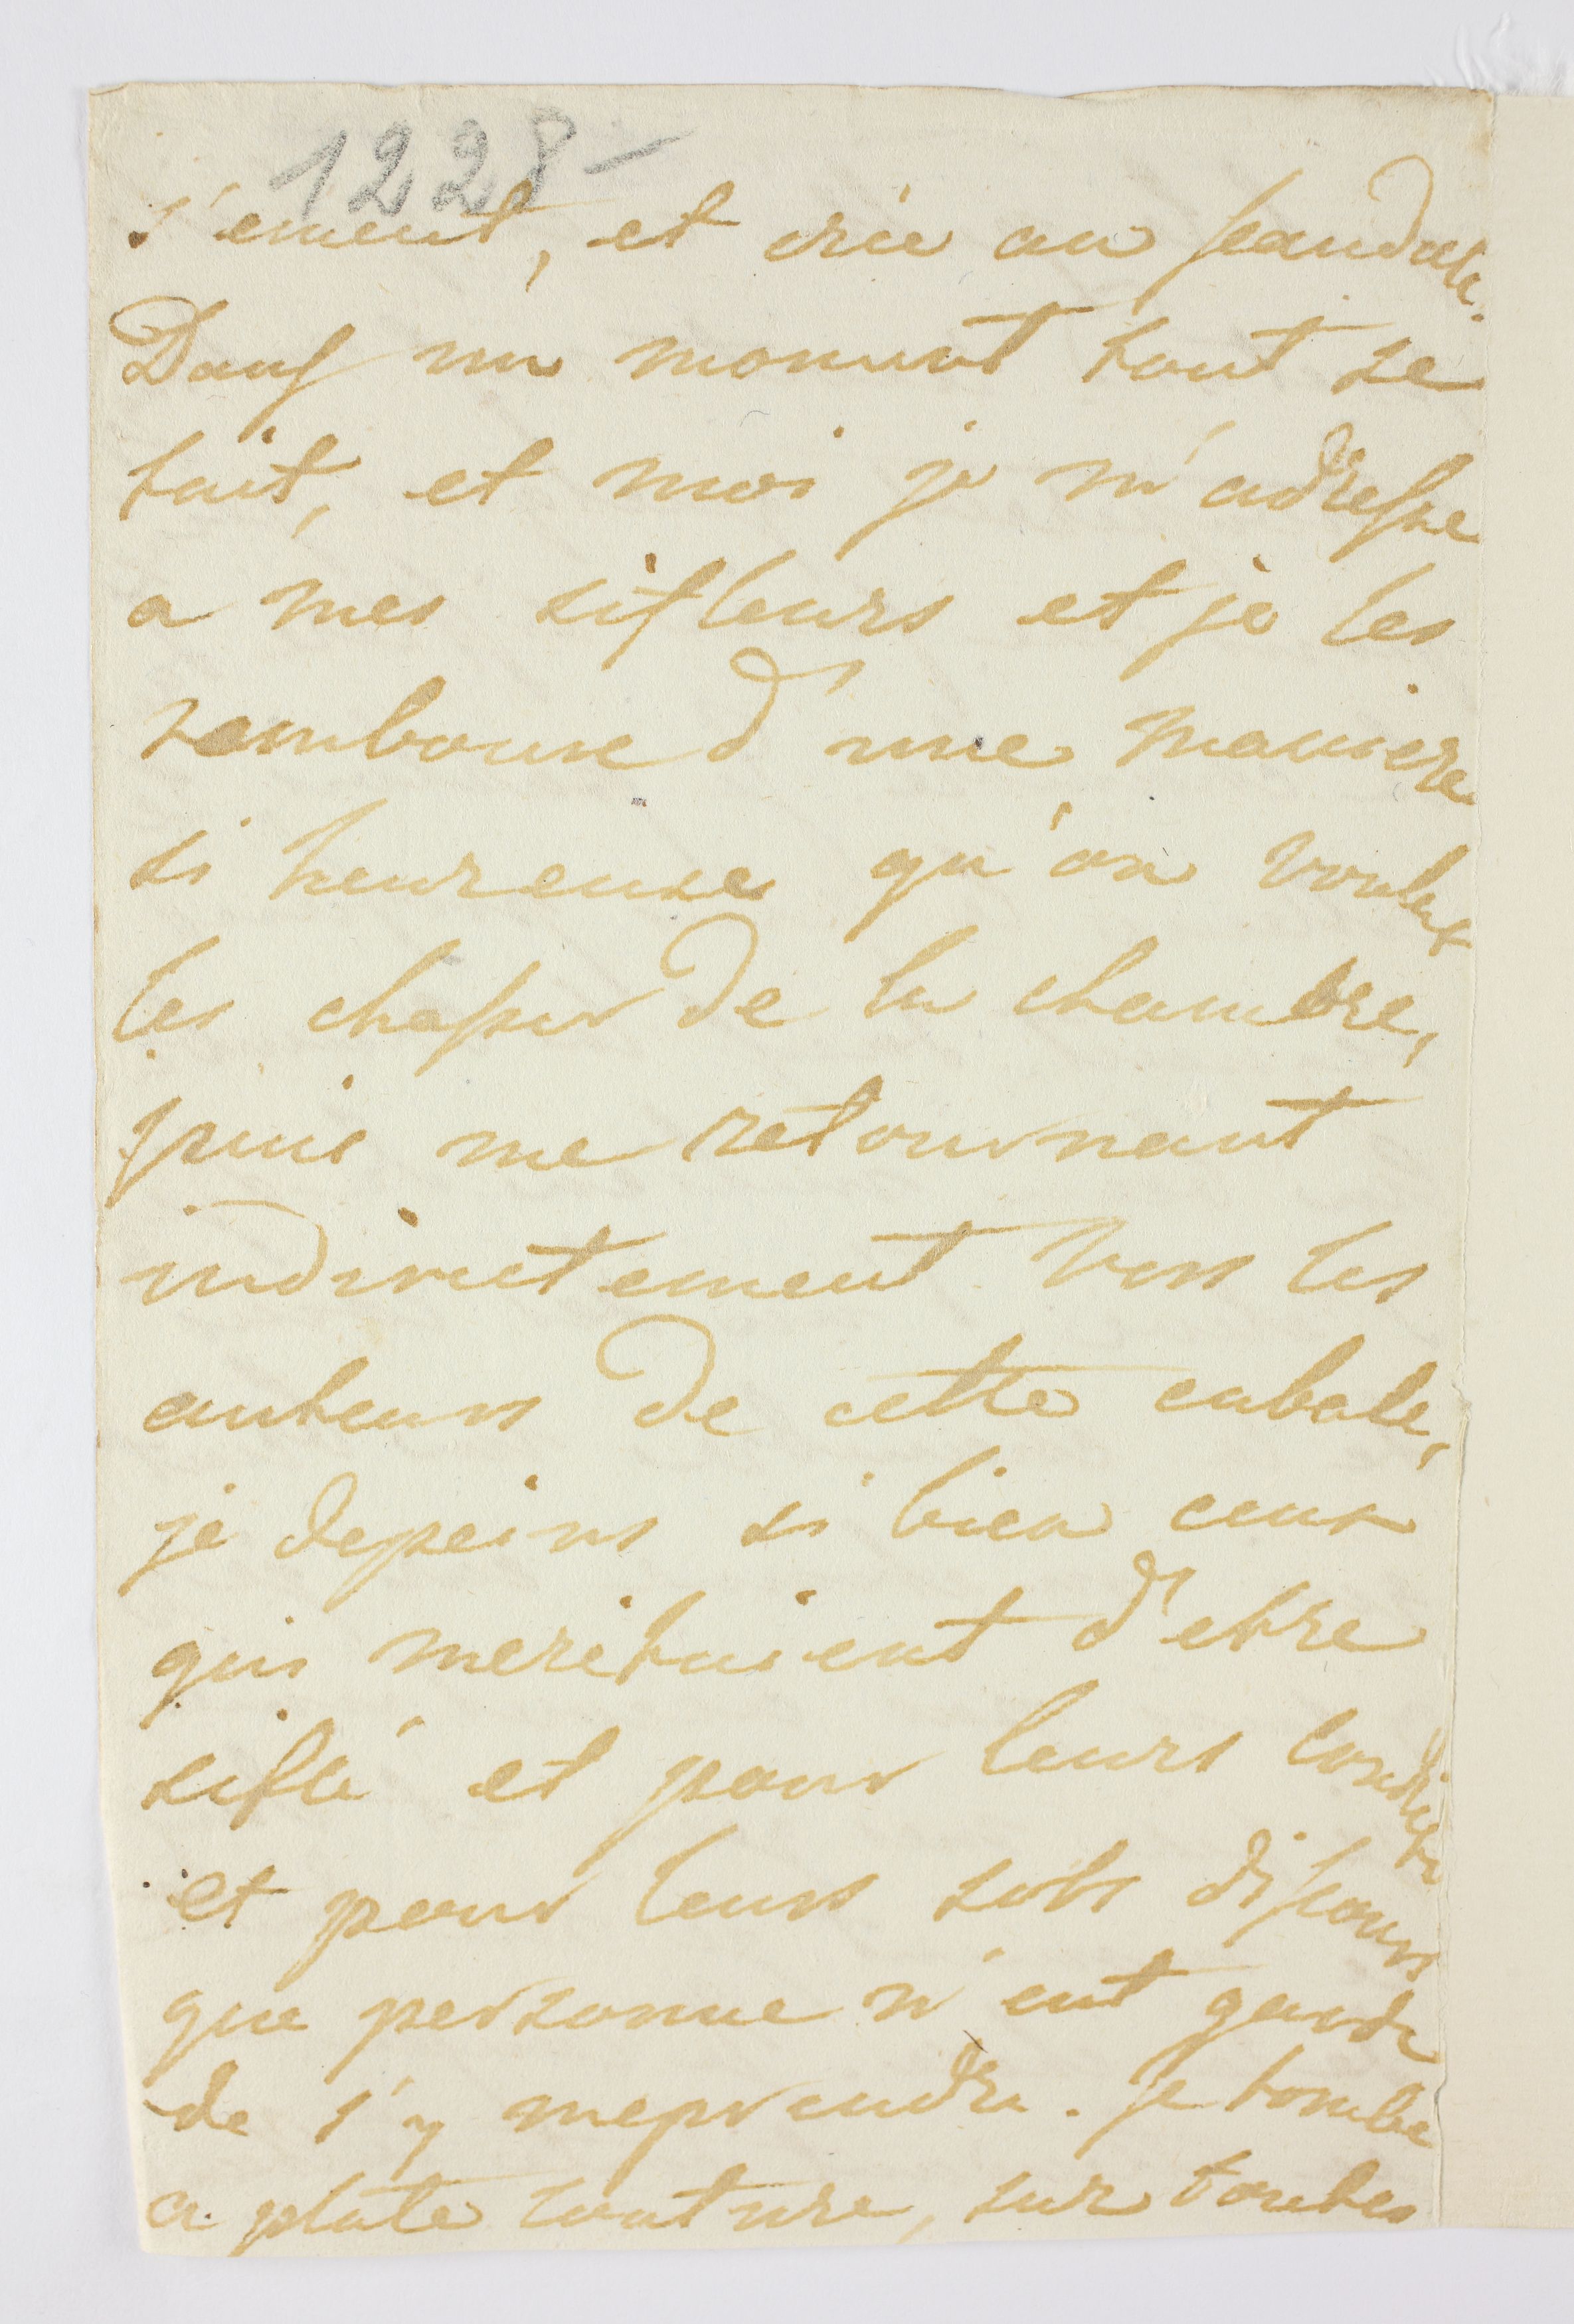 1228-
s'emeut, et crie au scandale.
Dans un moment tout se
tait, et moi je m'adresse
a mes sifleurs et je les
remboure d'une maniere
si heureuse qu'on vouloit
les chasser de la chambre,
puis me retournant
indirectement vers les
auteurs de cette cabale,
je depeins si bien ceux
qui meritaient d'etre
siflé et pour leurs conduite
et pour leurs sots discours
que personne n'eut garde
de s'y meprendre. Je tombe
a plate couture, sur toutes